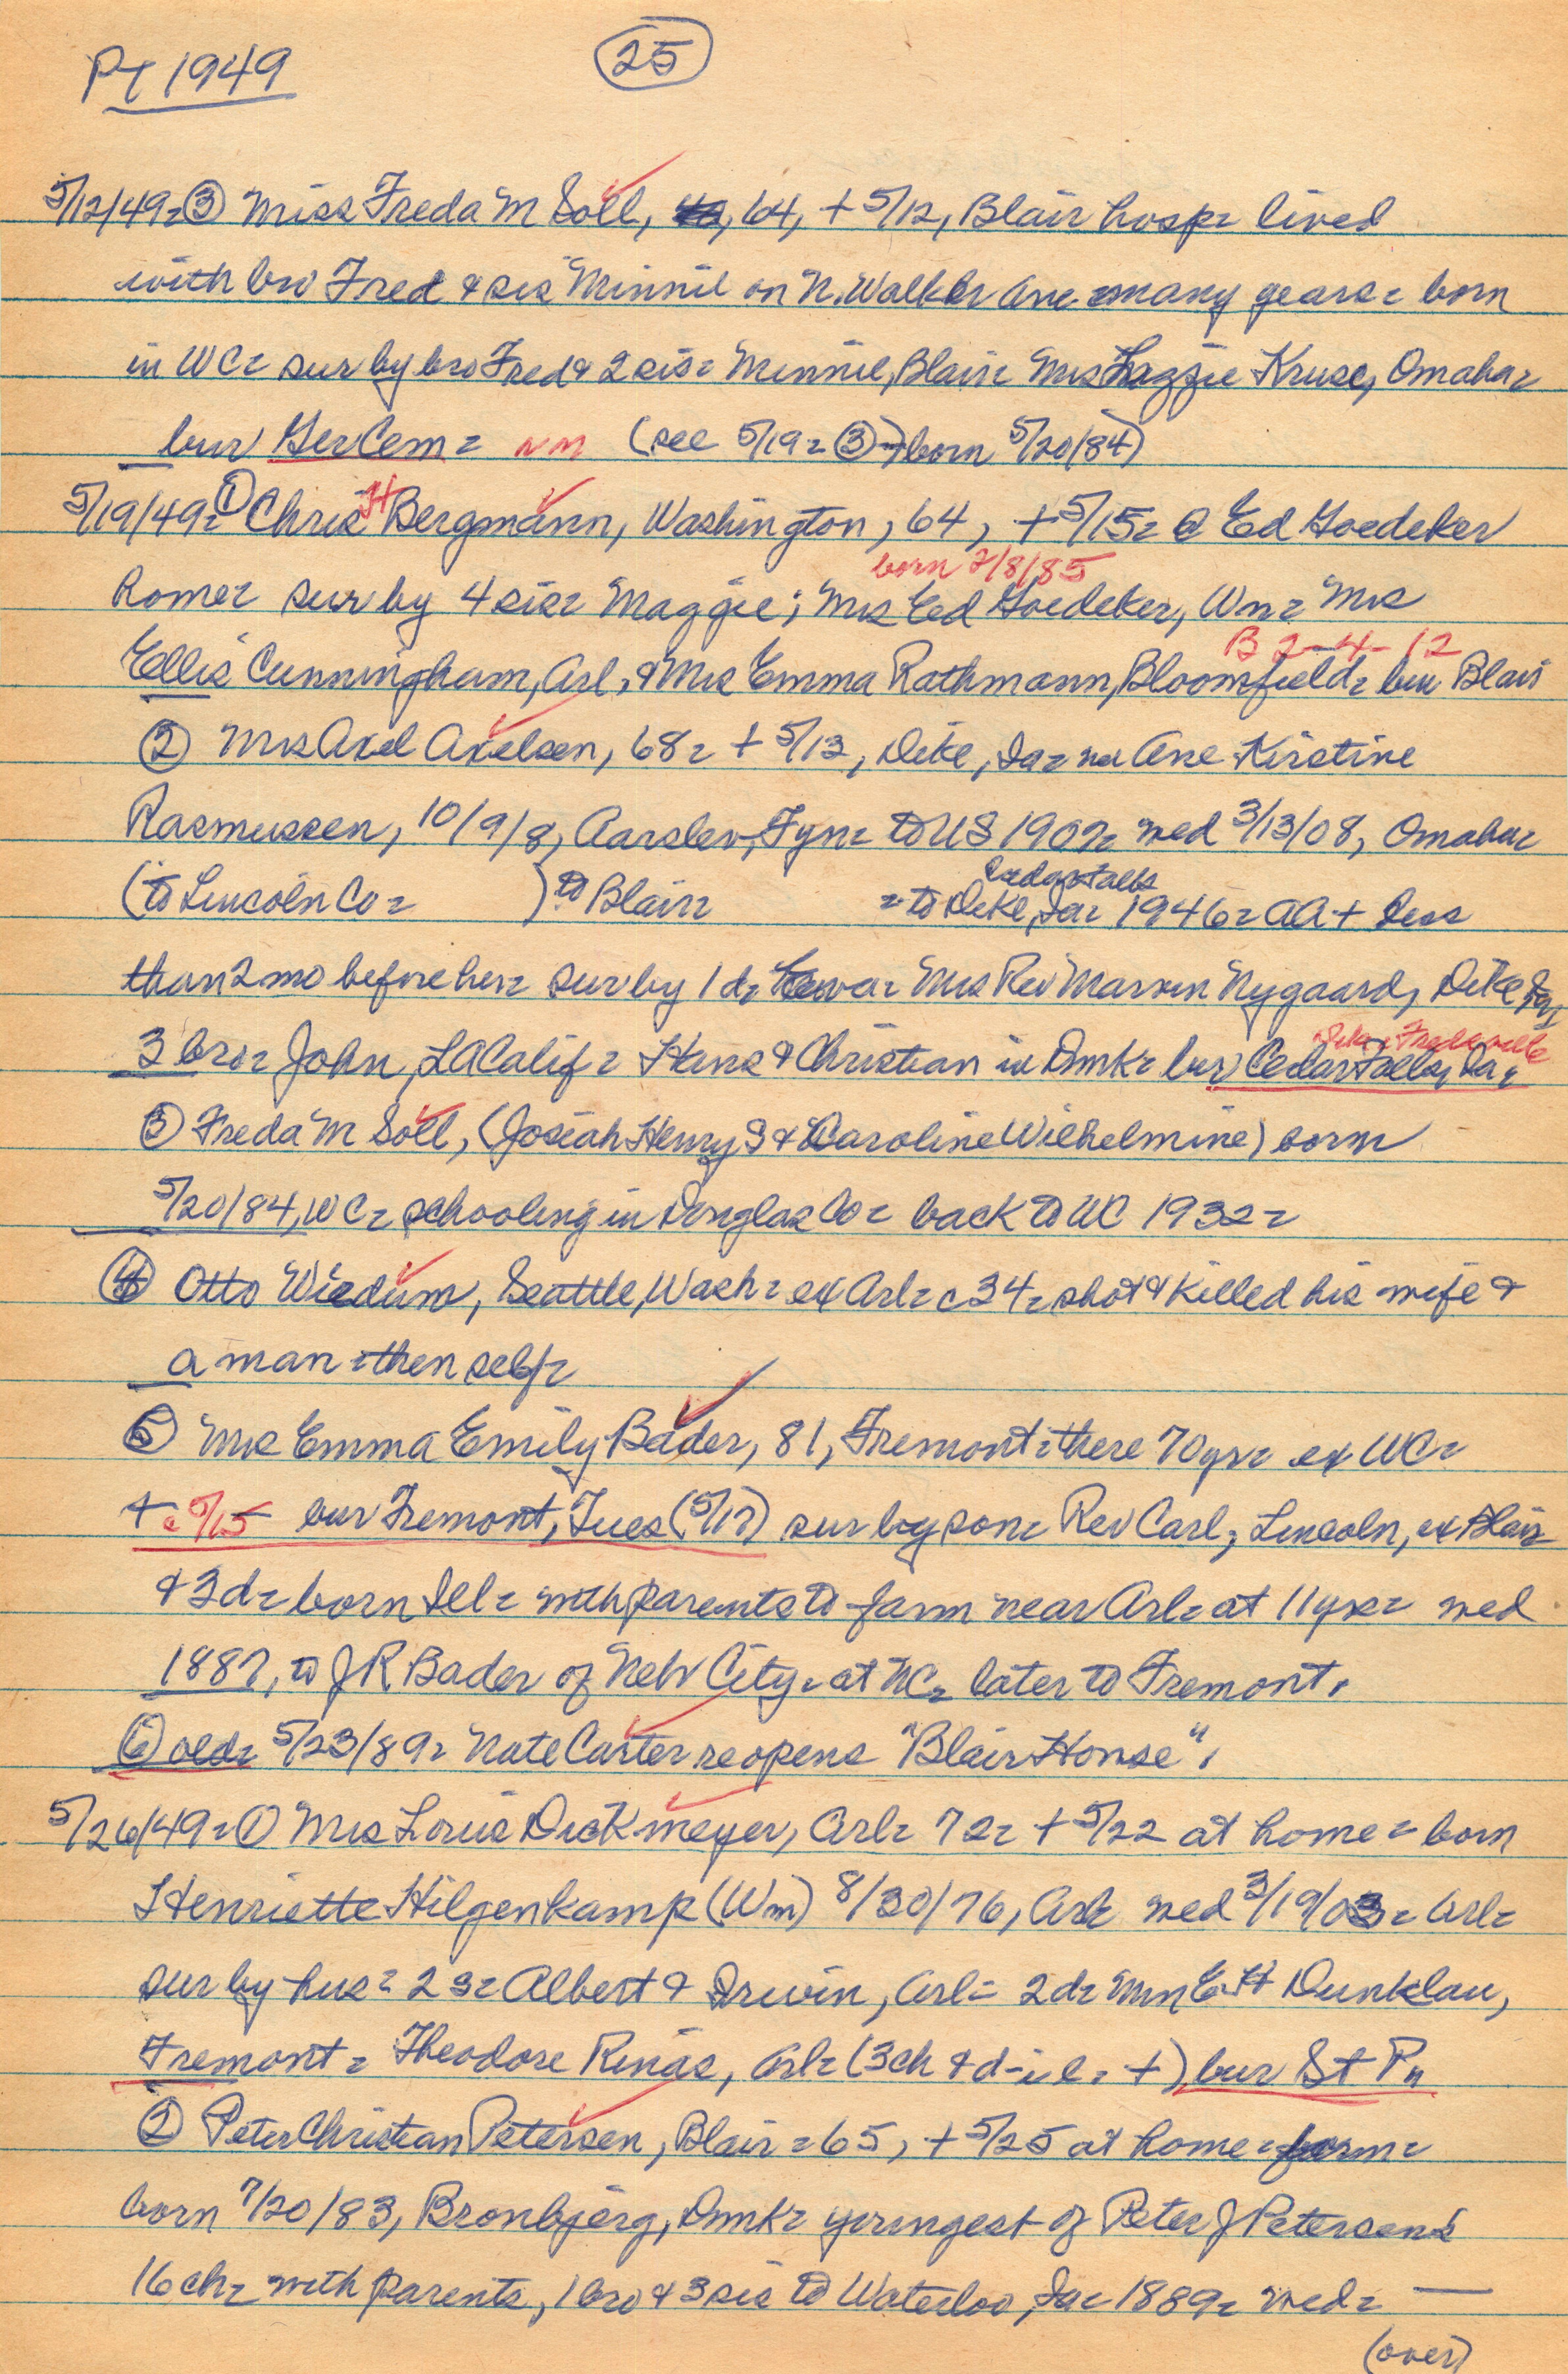 PT 1949 25
5/12/49= ③ Miss Freda M Soll, 64, + 5/12, Blair hosp= lived
with bro Fred & sis Minnie on N. Walker Ave many years= born
in WC= sur by bro Fred & 2 sis= Minnie, Blair= Mrs Kruse, Omaha=
bur Ger Cem= (see 5/19= ③ born 5/20/84)
5/19/49= ① Chris H Bergmann, Washington, 64, + 5/15= @ Ed Goedeker
born 2/8/85
home= sur by 4 sis= Maggie; Mrs Ed Goedeker, Wn= Mrs
B 2-4-12
Ellis Cunningham, Arl, & Mrs Emma Rathmann, Bloomfield= bur Blair
② Mrs Axel Axelsen, 68= + 5/13, Dike, Ia= Ane Kirstine
Rasmussen, 10/9/8, Aarslev, Fyn= to US 1907= wed 3/13/08, Omaha=
Cedar Falls
(to Lincoln Co= ) to Blair= = to Dike, Ia= 1946= AA + less
than 2 mo before her= sur by 1 d= Mrs Rev Marvin Nygaard, Dike, Ia,
3 bro= John, LA Calif= Hans & Christian in Dnmk= bur Cedar Falls, Ia,
③ Freda M Soll, (Josiah Henry S & Caroline Wilhelmine) born
5/20/84, WC= schooling in Douglas Co= back to WC 1932=
④ Otto Wiedum, Seattle, Wash= ex Arl= c 34= shot & killed his wife &
a man= then self=
⑤ Mrs Emma Emily Bader, 81, Fremont= there 70 yrs= ex WC=
+ 5/15 bur Fremont, Tues (5/17) sur by son= Rev Carl, Lincoln, ex Blair
& 3 d= born Ill= with parents to farm near Arl= at 11 yrs= wed
1887, to J R Bader of Neb City= at WC= later to Fremont.
⑥ old= 5/23/89= Nate Carter reopens "Blair House".
5/26/49= ① Mrs Louis Dickmeyer, Arl= 72= + 5/22 at home= born
Henriette Hilgenkamp (Wm) 8/30/76, Arl= wed 3/19/03= Arl=
sur by hus= 2 s= Albert & Irwin, Arl= 2 d= Dunklau,
Fremont= Theodore Rinas, Arl= (3 ch & d-i-l. +) bur St P"
② Peter Christian Petersen, Blair= 65, + 5/25 at home= farm=
born 7/20/83, Bronbjerg, Dnmk= youngest of Peter J Petersen's
16 ch= with parents, 1 bro & 3 sis to Waterloo, Ia= 1889= wed= —
(over)